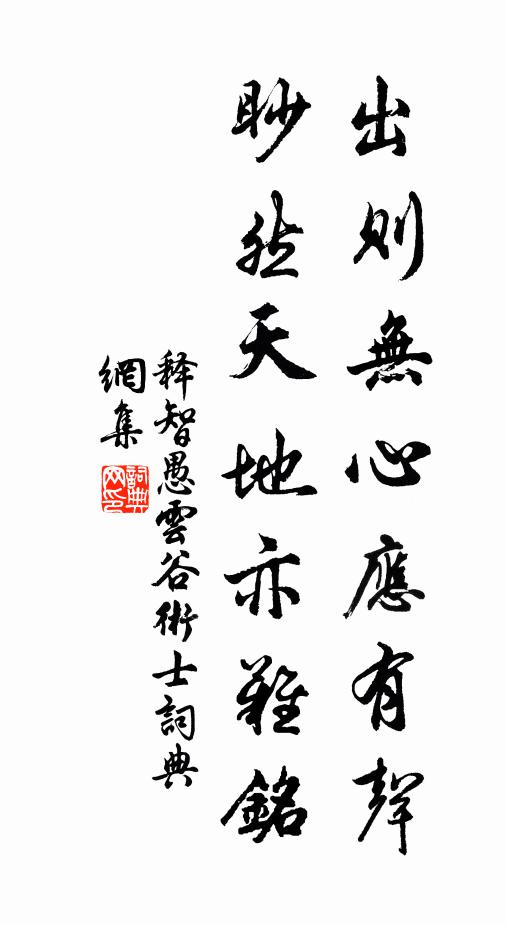 出則無心應有聲
眇然天地亦難銘
释智愚雲谷術士詞典
網集
詞典网印